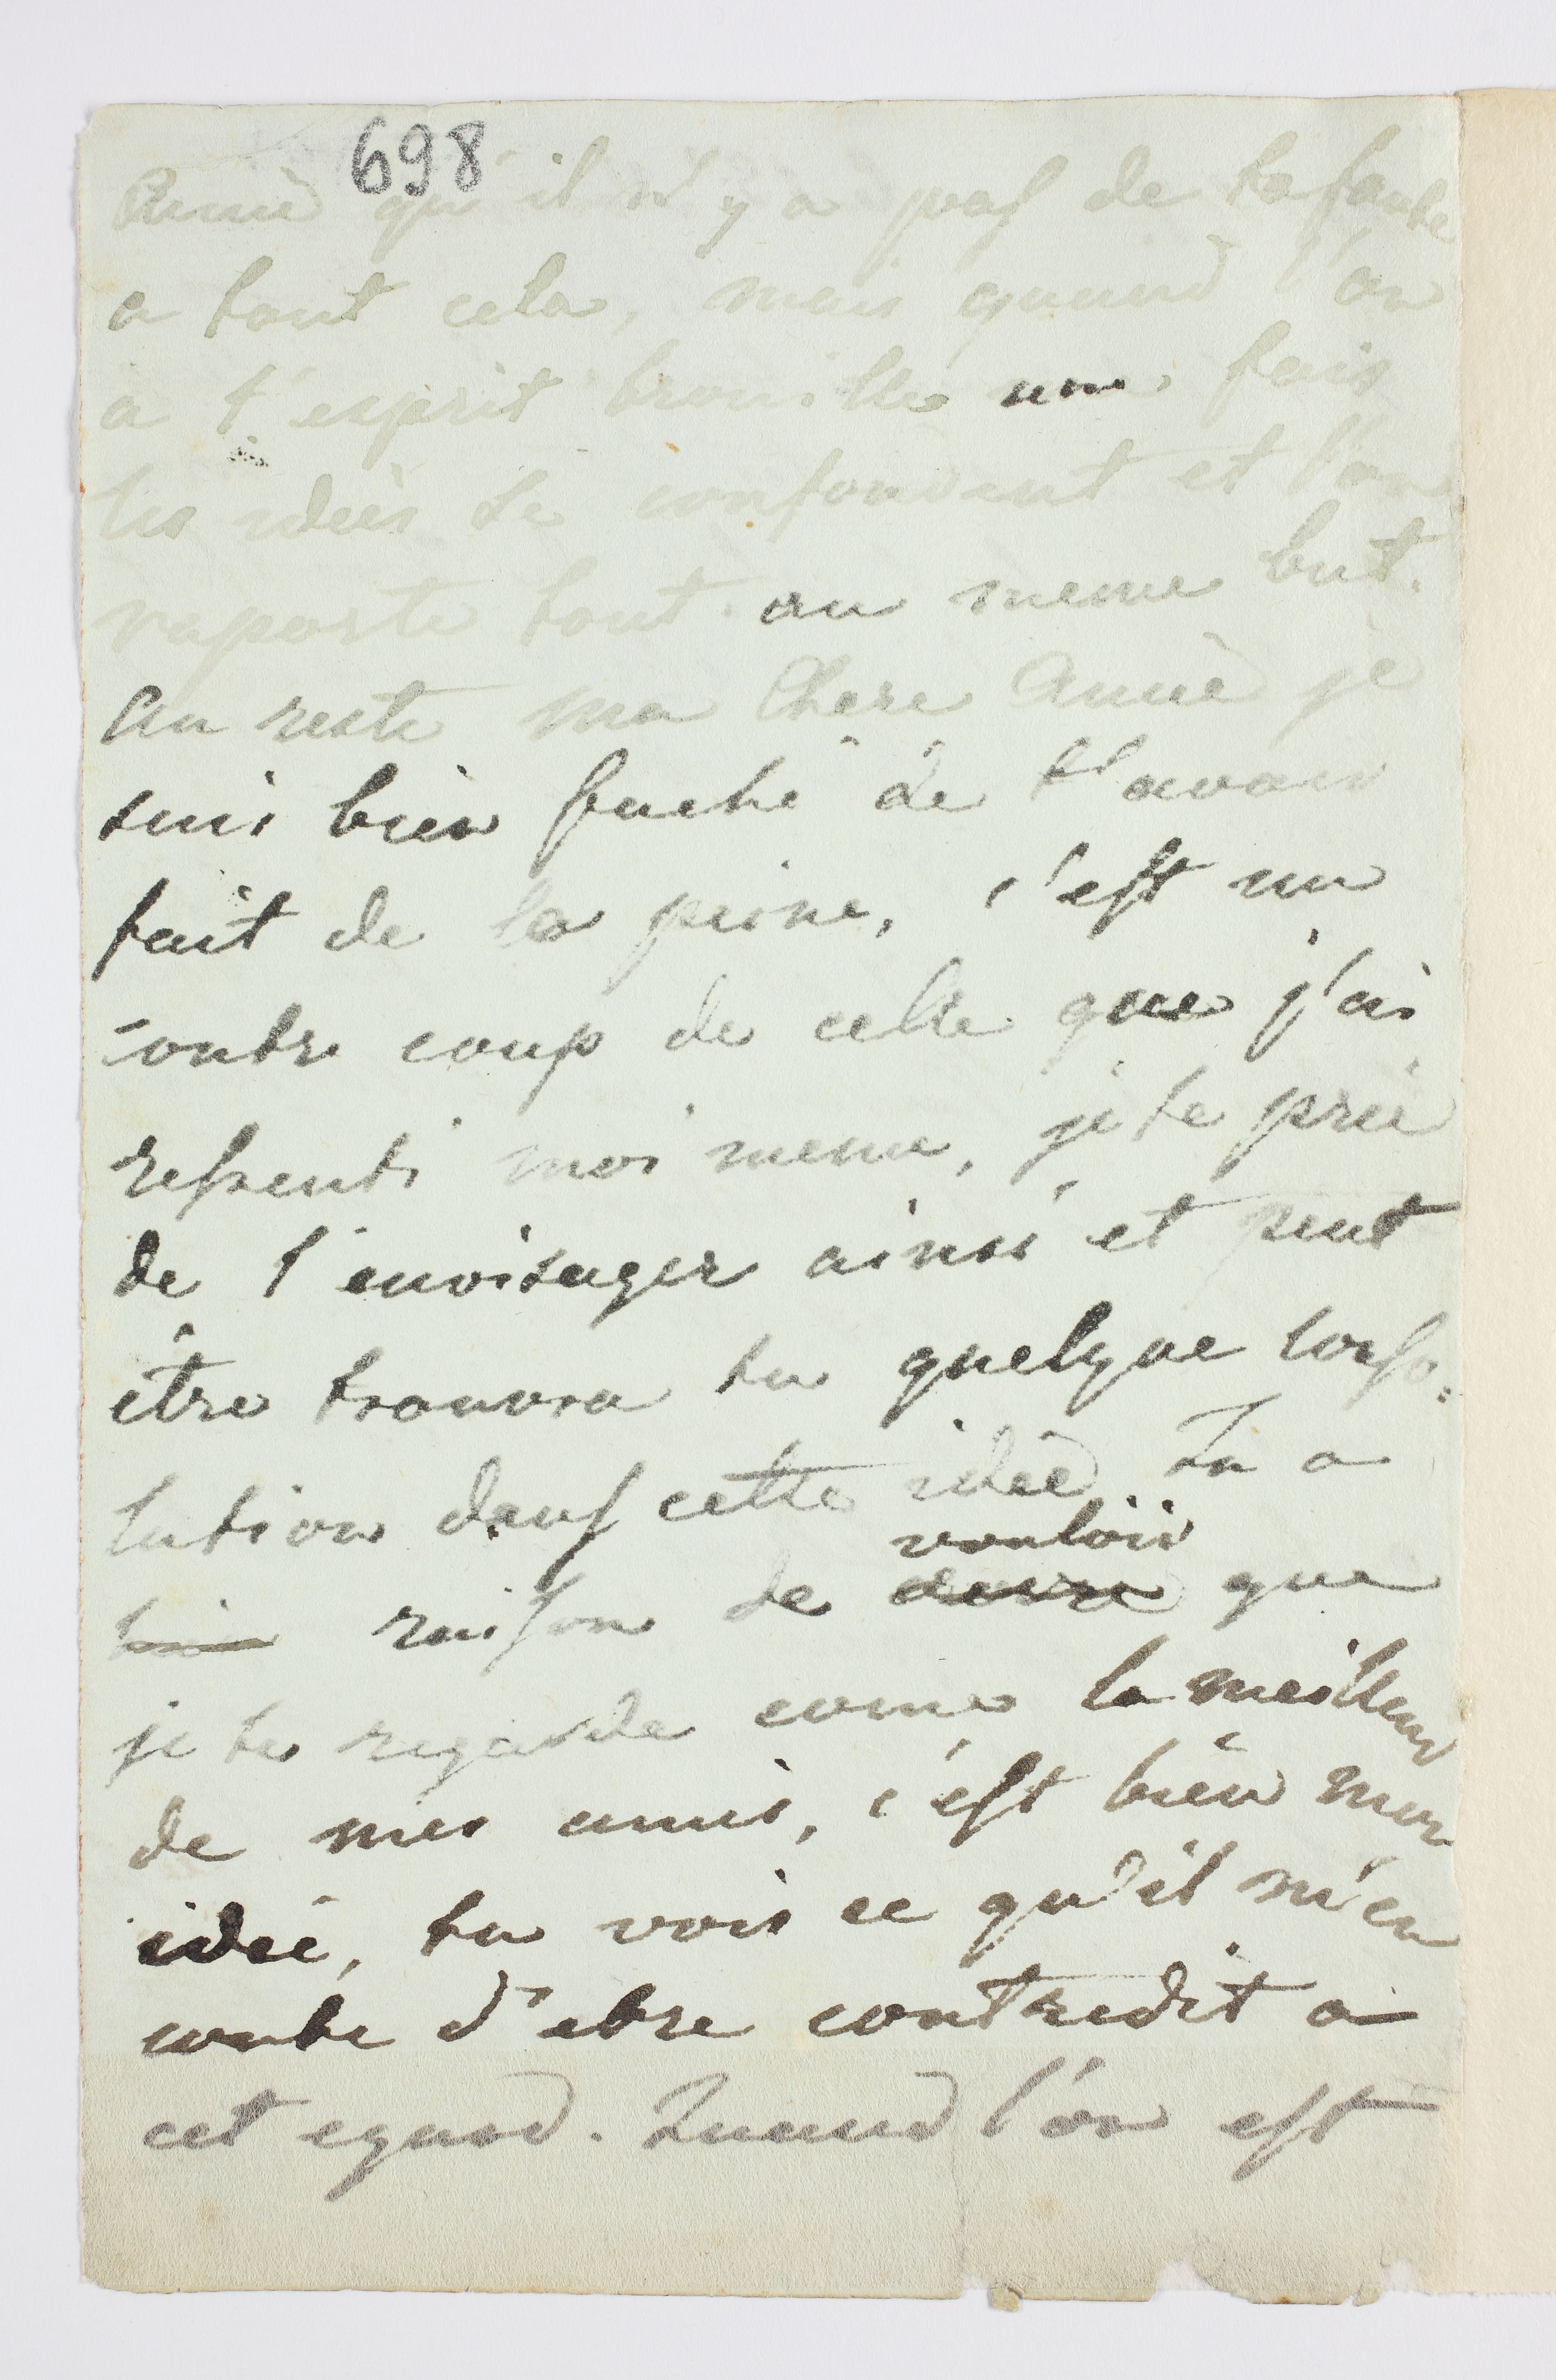 698
Amie qu'il n'y a pas de ta faute
a tout cela, mais quand l'on
a l'esprit brouillé une fois
les idées se confondent et l'on
raporte tout au meme but.
Au reste ma Chere Amie je
suis bien faché de t'avoir
fait de la peine, c'est un
contre coup de celle que j'ai
ressenti moi meme, je te prie
de l'envisager ainsi et peut
être trouvra tu quelque conso=
lation dans cette idée. Tu a
bien raison de vouloir
que
je te regarde come la meilleur
de mes amis, c'est bien mon
idée, tu vois ce qu'il m'en
coute d'etre contredit a
cet egard. Quand l'on est